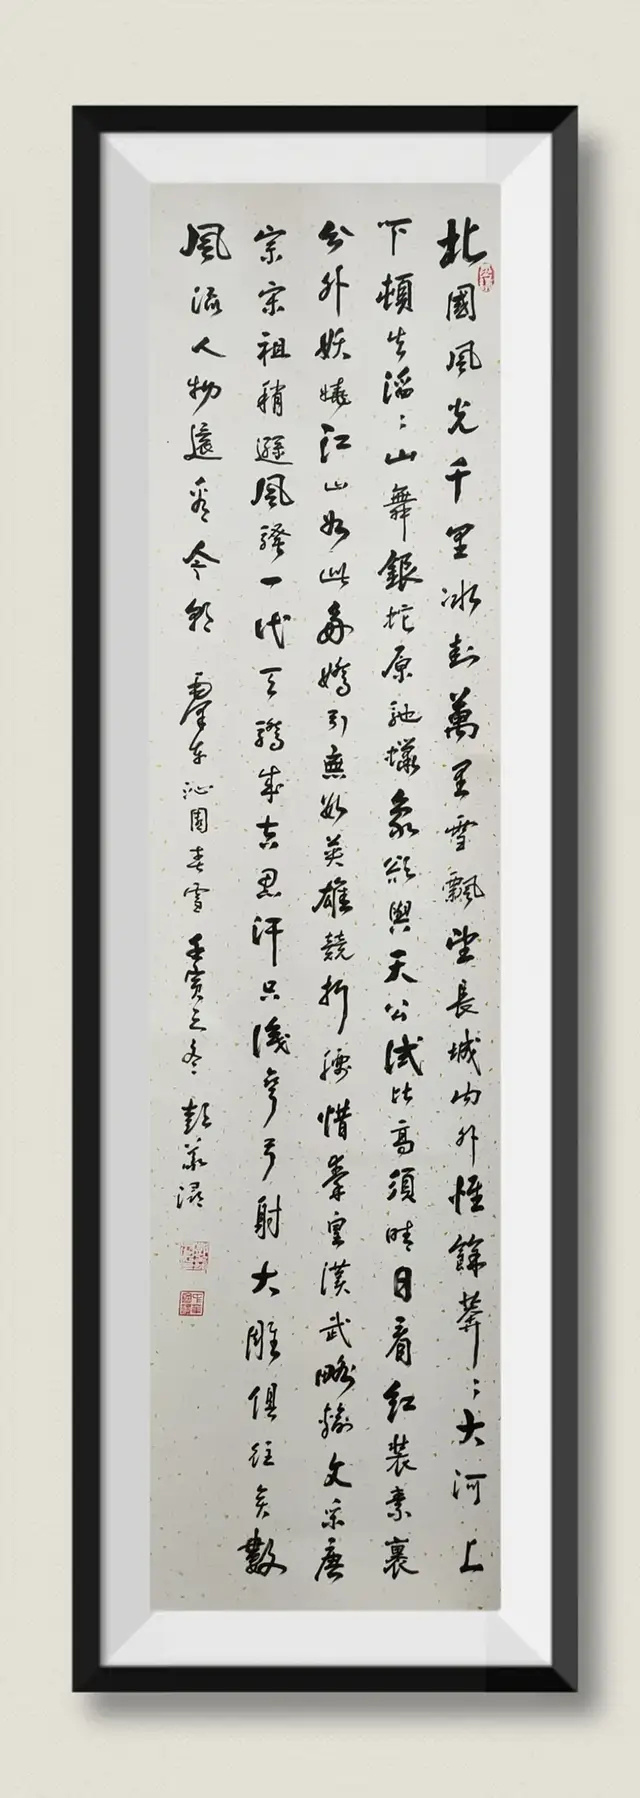 北國風光千里冰封萬里雪飄望長城內外惟餘莽:大河上
下頓失滔:山舞銀蛇原馳蠟象欲與天公試比高須晴日看紅裝素裹
分外妖嬈江山如此多嬌引無數英雄競折腰惜秦皇漢武略輸文采唐
宗宋祖稍遜風騷一代天驕成吉思汗只識彎弓射大雕俱往矣數
風流人物還看今朝 沁園春雪 壬寅之冬 彭